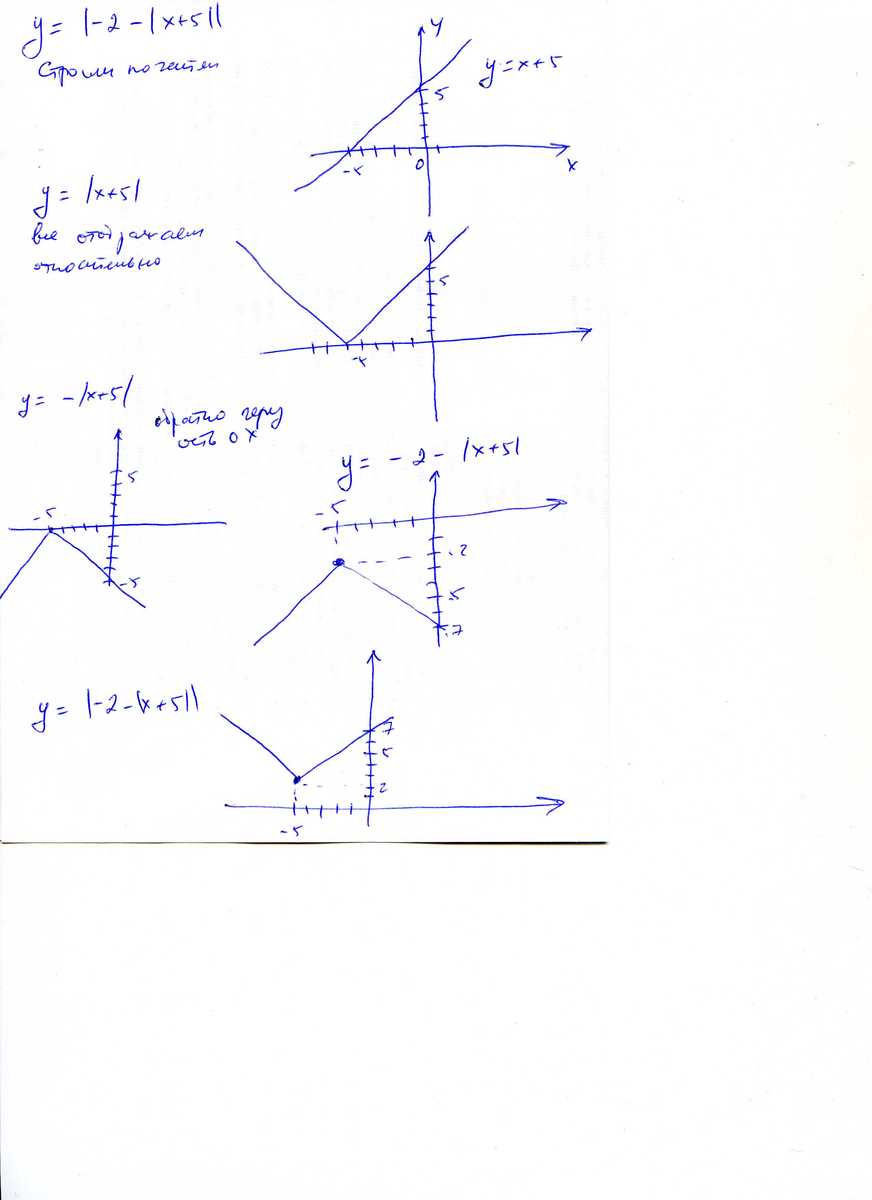 y = |-2 -|x+5||
Строим по частям
y
y = x+5
5
-5
0
x
y = |x+5|
все отображаем
относительно
5
-5
y = -|x+5|
обратно через
ось OX
5
-5
-5
y = -2 - |x+5|
-5
-2
-5
-7
y = |-2-|x+5||
7
5
2
-5